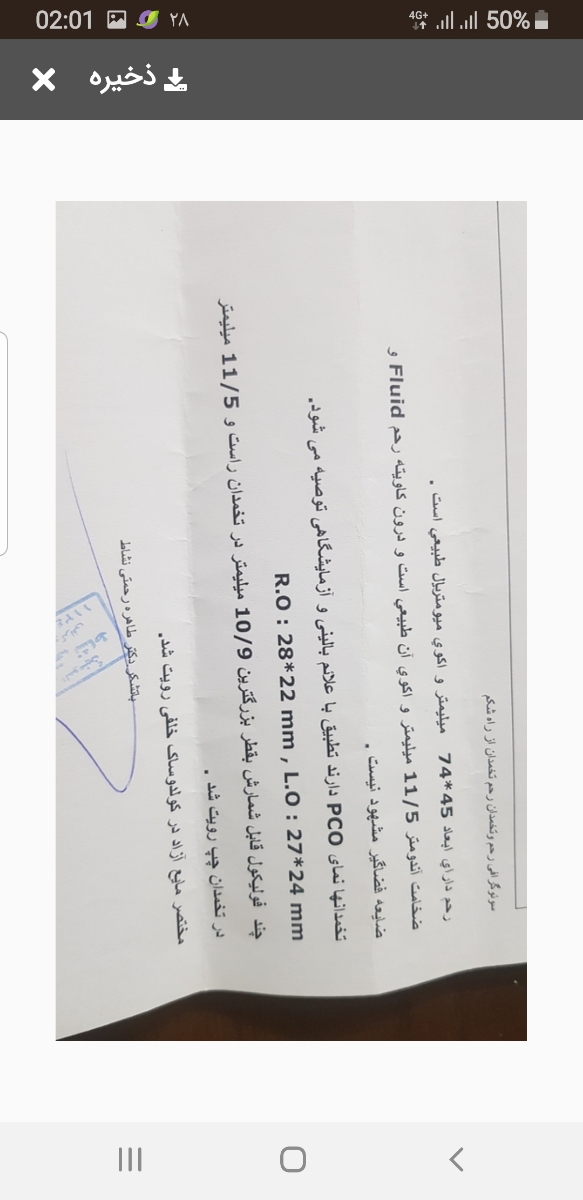 02:01
۲۸
4G+
50%
ذخیره
سونوگرافی رحم وتخمدان رحم تخمدان از راه شکم
رحم داراي ابعاد 45*74 میلیمتر و اکوي میومتریال طبیعي است .
ضخامت آندومتر 11/5 میلیمتر و اکوي آن طبیعي است و درون کاویته رحم Fluid و
ضایعه فضاگیر مشهود نیست .
تخمدانها نمای PCO دارند تطبیق با علائم بالینی و آزمایشگاهی توصیه می شود.
R.O : 28*22 mm , L.O : 27*24 mm
چند فولیکول قابل شمارش بقطر بزرگترین 10/9 میلیمتر در تخمدان راست و 11/5 میلیمتر
در تخمدان چپ رویت شد .
مختصر مایع آزاد در کولدوساک خلفی رویت شد.
باتشکر دکتر طاهره رحمتی نشاط